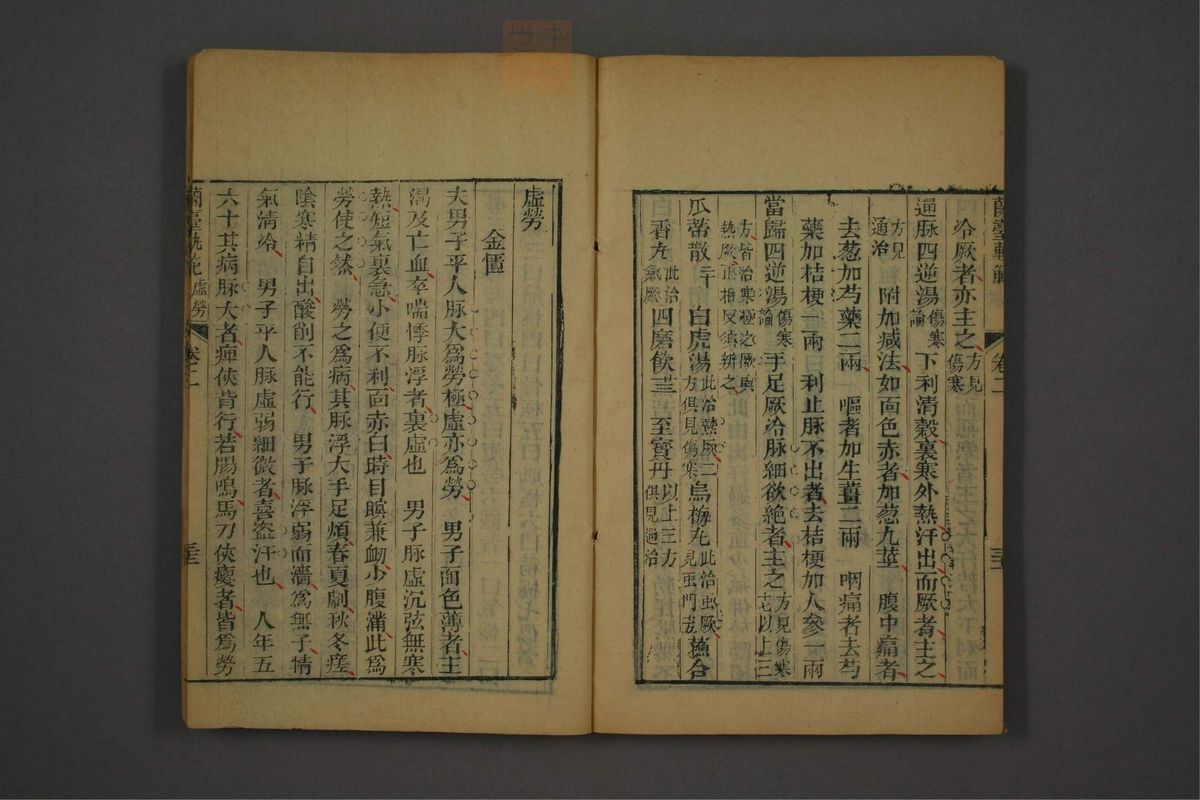 蘭臺軌範 卷二
冷厥者亦主之方見傷寒
通脉四逆湯傷寒論 下利清穀裏寒外熱汗出而厥者主之
方見通治 附加減法如面色赤者加葱九莖 腹中痛者
去葱加芍藥二兩 嘔者加生薑二兩 咽痛者去芍
藥加桔梗一兩 利止脉不出者去桔梗加人參一兩
當歸四逆湯傷寒論 手足厥冷脉細欲絶者主之方見傷寒 以上三
方皆治寒極之厥與熱厥正相反須辨之
瓜蔕散 白虎湯此治熱厥二方俱見傷寒 烏梅丸此治蚘厥見虫門 蘇合
香丸此治氣厥 四磨飲 至寳丹以上三方俱見通治
虛勞
金匱
夫男子平人脉大爲勞極虛亦爲勞 男子面色薄者主
渴及亡血卒喘悸脉浮者裏虛也 男子脉虛沉弦無寒
熱短氣裏急小便不利面赤白時目瞑兼衂少腹滿此爲
勞使之然 勞之爲病其脉浮大手足煩春夏劇秋冬瘥
陰寒精自出酸削不能行 男子脉浮弱而濇爲無子精
氣清冷 男子平人脉虛弱細微者喜盜汗也 人年五
六十其病脉大者痺俠背行若腸鳴馬刀俠癭者皆爲勞
蘭臺軌範 虛勞 卷二